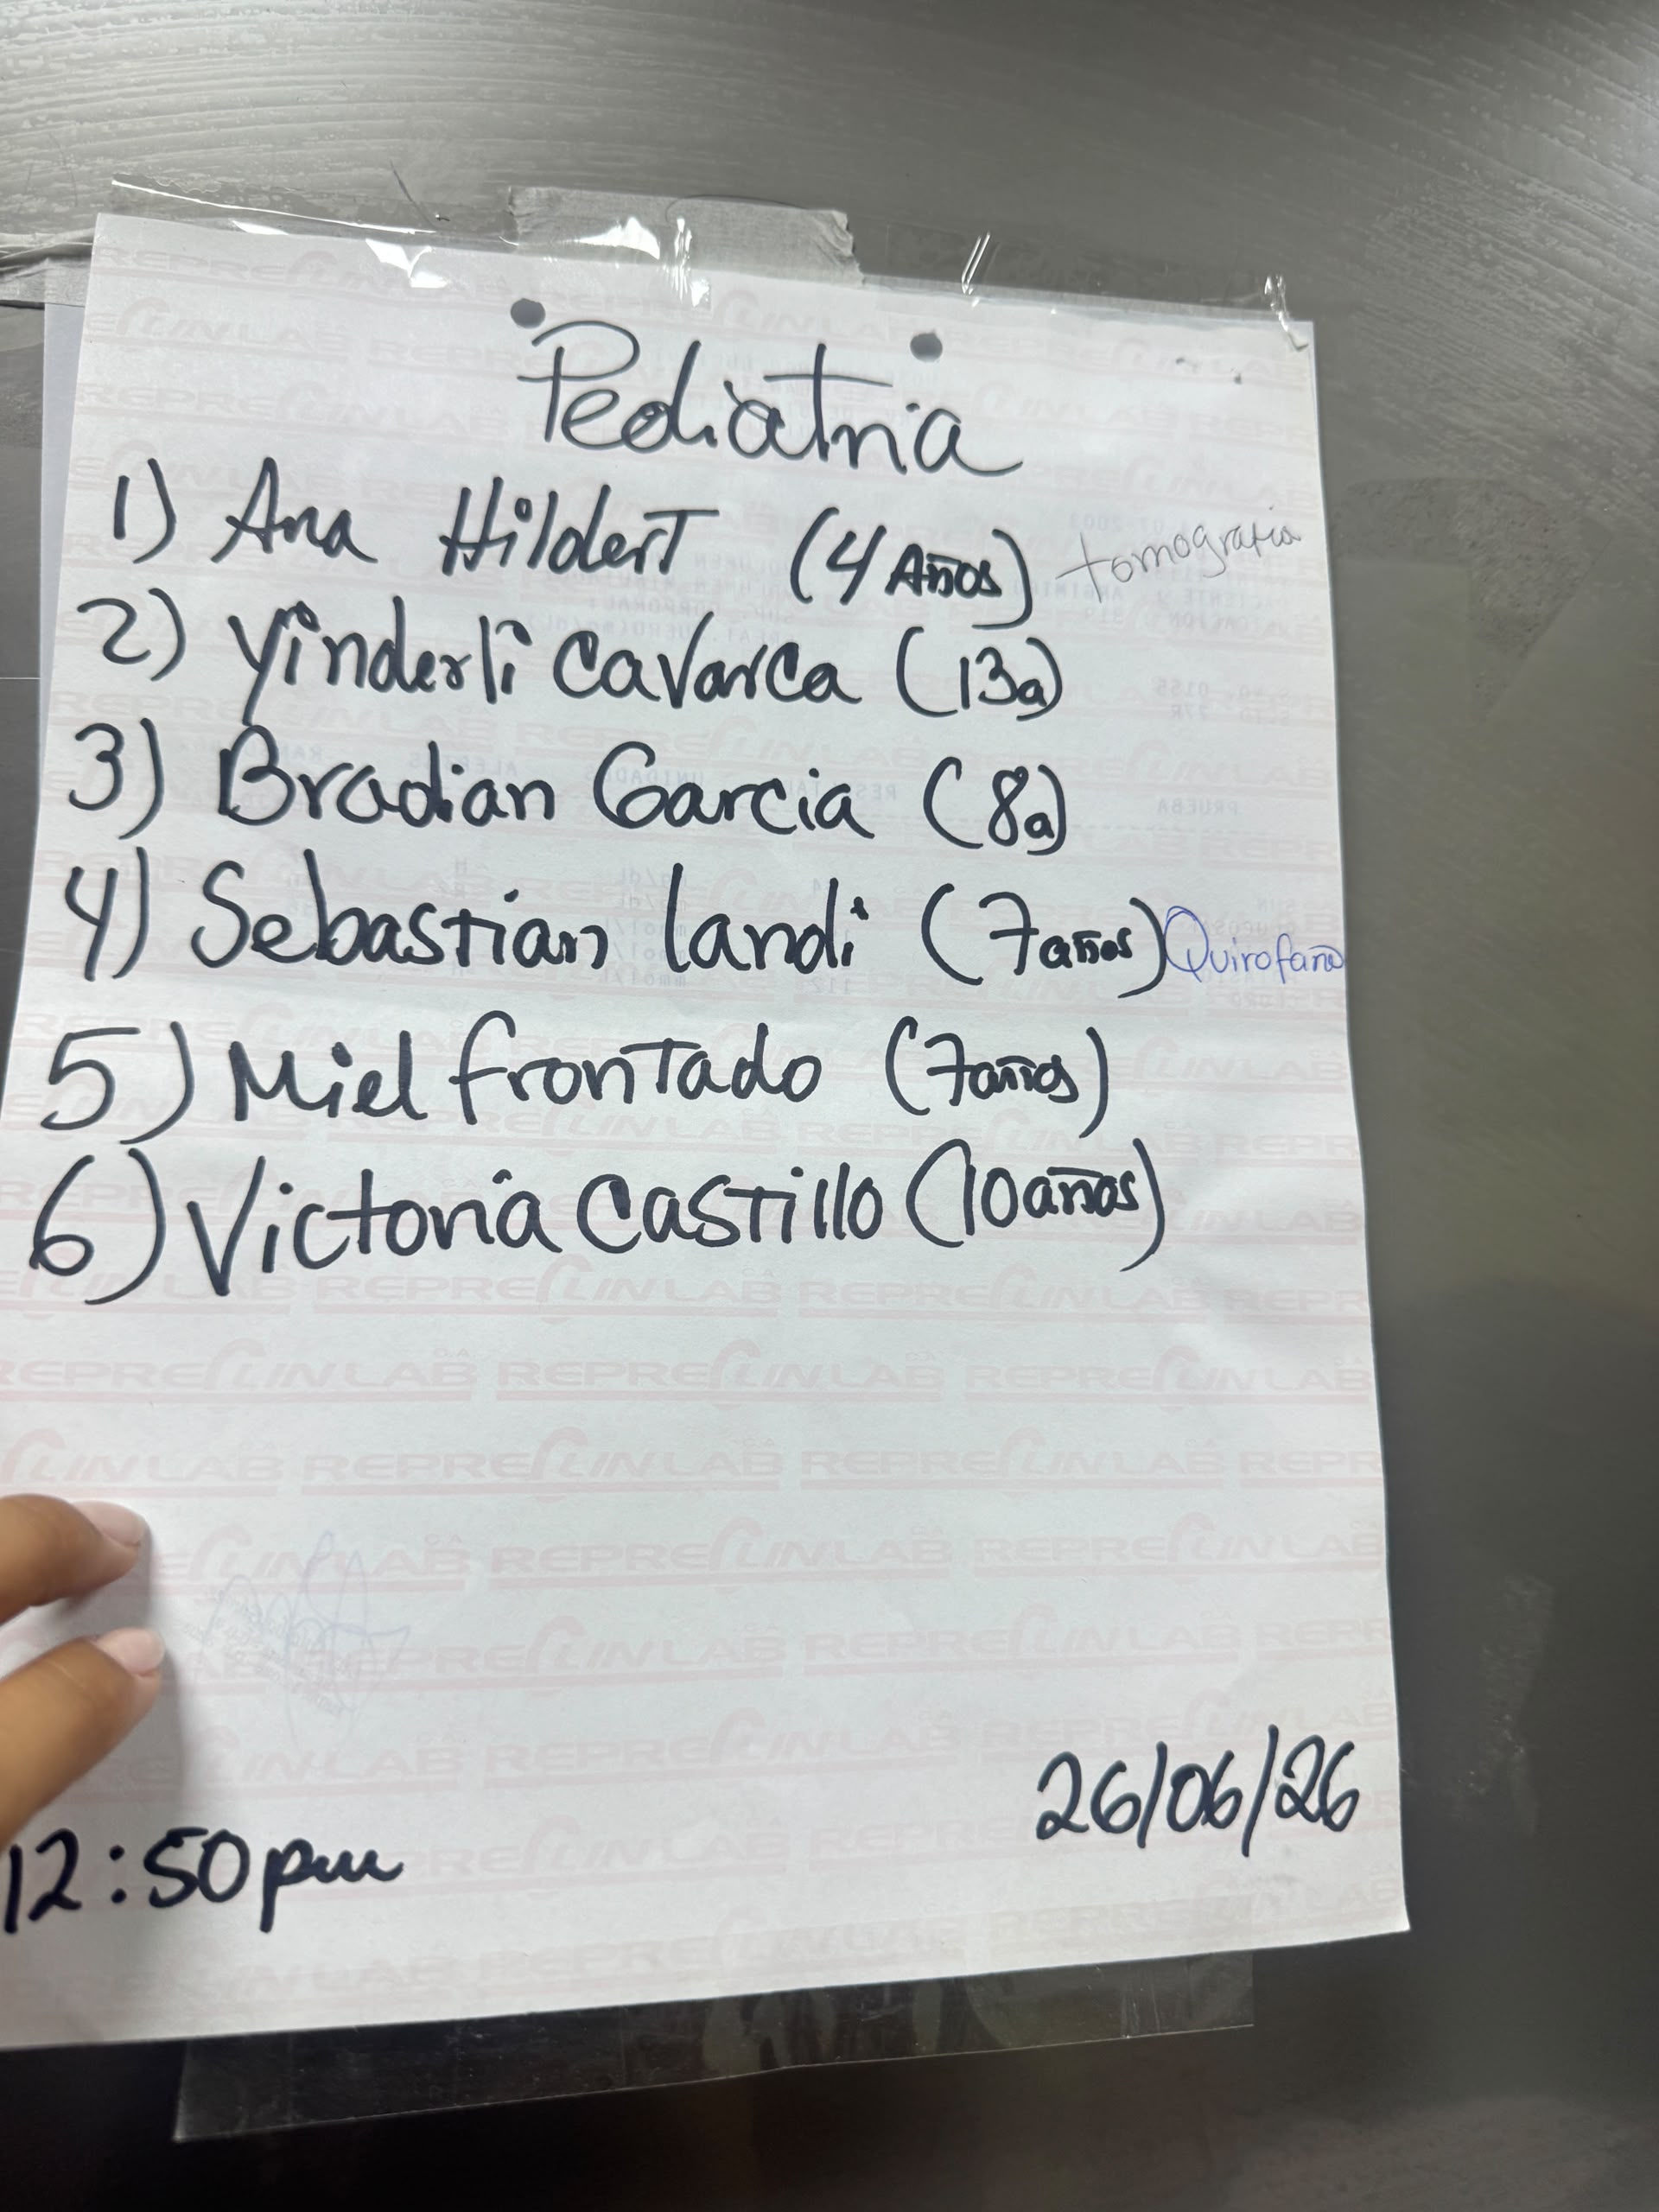 Pediatria
1) Ana Hildert (4 Años) tomografia
2) Yinderli Cavarca (13a)
3) Bradian Garcia (8a)
4) Sebastian landi (7años) Quirofano
5) Miel frontado (7años)
6) Victoria Castillo (10años)
26/06/26
12:50pm
REPRECLINLAB